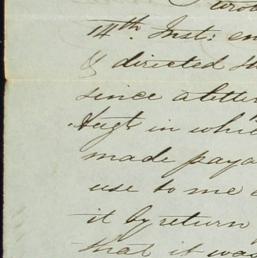 wrote
14th Inst: en
& directed
since a letter
Augt in which
made paya
use to me
it by return
that it was